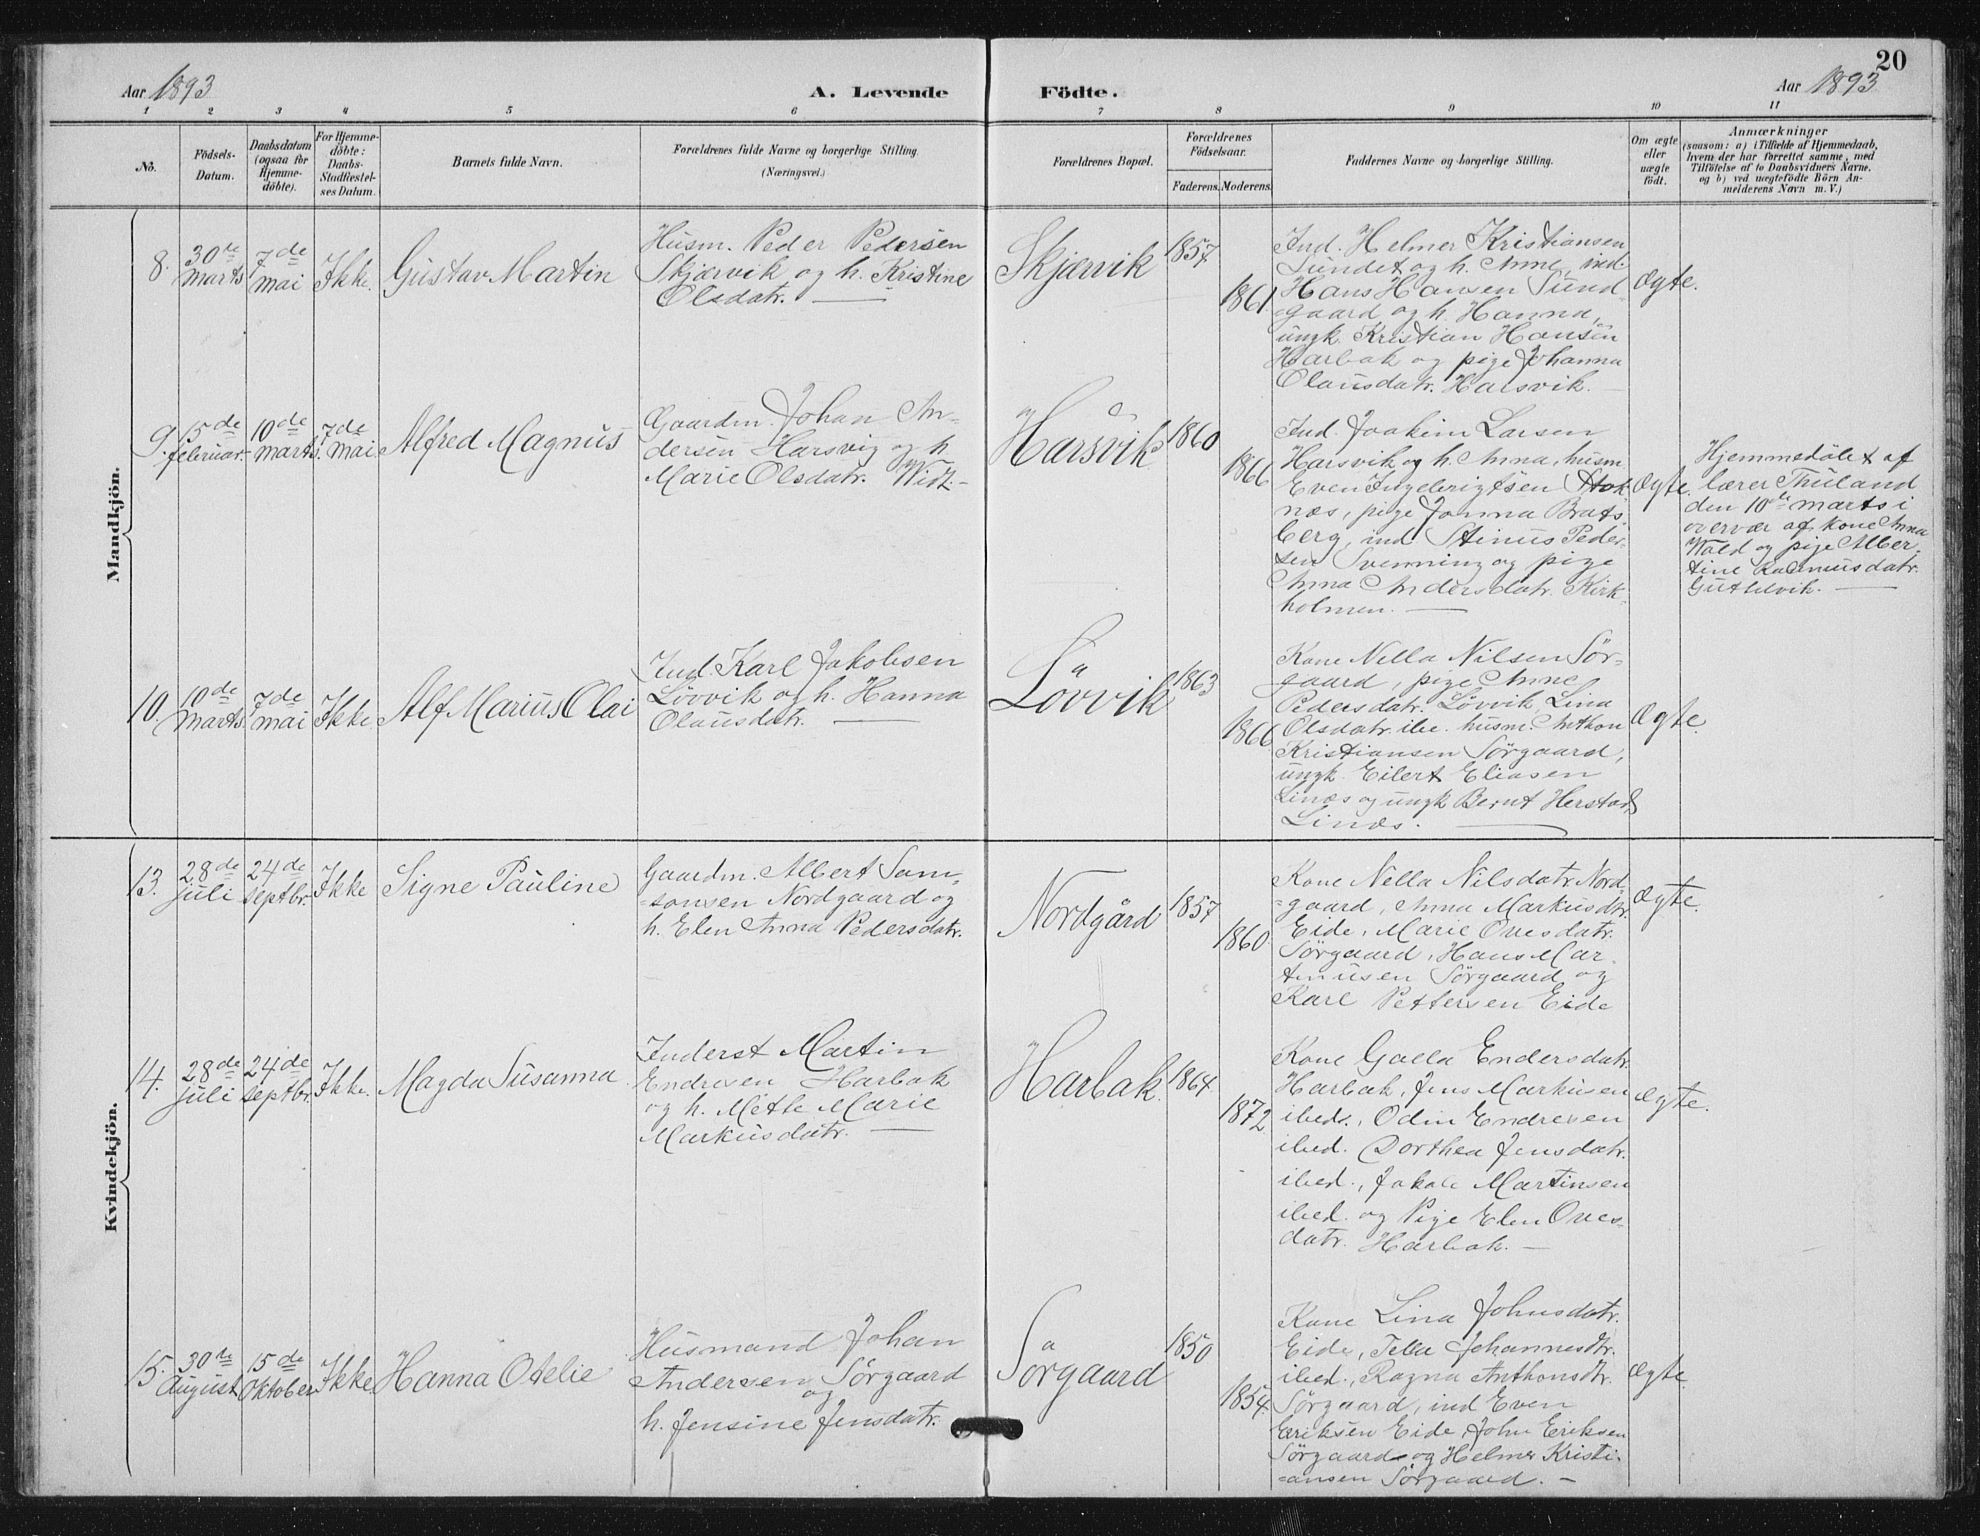 20
Aar 1893
A. Levende Födte.
Aar 1893
1 2 3 4 5 6 7 8 9 10 11
No.
Födsels-
Datum.
Daabsdatum
(ogsaa for
Hjemme-
döbte).
For Hjemme-
döbte:
Daabs-
Stadfæstel-
ses Datum.
Barnets fulde Navn.
Forældrenes fulde Navne og borgerlige Stilling.
(Næringsvei.)
Forældrenes Bopæl.
Forældrenes
Födselsaar.
Faderens. Moderens.
Faddernes Navne og borgerlige Stilling.
Om ægte
eller
uægte
födt.
Anmærkninger
(saasom: a) i Tilfælde af Hjemmedaab,
hvem der har forrettet samme, med
Tilföielse af to Daabsvidners Navne.
og b) ved uægtefödte Börn An-
melderens Navn m. V.)
Mandkjön.
8.
30te
Marts
7de
mai
Ikke.
Gustav Martin
Husm. Peder Pedersen
Skjærvik og h. Kristine
Olsdatr. —
Skjærvik
1857
1861.
Ind. Helmer Kristiansen
Sundet og h. Anne, ind.
Hans Hansen Sund-
gaard og h. Hanna,
ungk. Kristian Hansen
Harbak og pige Johanna
Olausdatr. Harsvik. —
Ægte.
9.
15de
februar.
10de
marts.
7de
mai
Alfred Magnus
Gaardm. Johan An-
dersen Harsvig og h
Marie Olsdatr. Widt. -
Harsvik
1860
1866
Ind. Joakim Larsen
Harsvik og h. Anna, husm
Even Ingebrigtsen Stok-
næs, pige Jonna Brats-
berg, ind Stinus Peder-
sen Svenning og pige
Anna Andersdatr. Kirk-
holmen. —
Ægte.
Hjemmedöbt af
lærer Thuland
den 10de marts i
overvær af kone Anna
Wold og pige Alber-
tine Rasmusdatr.
Guttelvik. —
10.
10de
Marts
7de
mai
Ikke
Alf Marius Olai
Ind. Karl Jakobsen
Lövvik og h. Hanna
Olausdatr. —
Lövvik
1863
1866
Kone Nella Nilsen Sör-
gaard, pige Anne
Pedersdatr. Lövvik, Lina
Olsdatr. ibe. husm. Anthon
Kristiansen Sörgaard,
ungk. Eilert Eliasen
Linæs og ungk Bernt Herstad
Linæs. —
Ægte.
Kvindekjön.
13.
28de
juli
24de
septbr.
Ikke
Signe Pauline
Gaardm. Albert Sam-
sonsen Nordgaard og
h. Elen Anna Pedersdatr.
Nordgård
1857
1860
Kone Nella Nilsdatr. Nord-
gaard, Anna Markusdtr.
Eide, Marie Ovesdatr.
Sörgaard, Hans Mar-
tinusen Sörgaard og
Karl Pettersen Eide
Ægte.
14.
28de
juli
24de
septbr.
Ikke.
Magda Susanna
Inderst Martin
Endresen Harbak
og h. Mette Marie
Markusdatr. —
Harbak.
1864.
1872
Kone Golla Endersdatr.
Harbak, Jens Markusen
ibed., Odin Endresen
ibed. Dorthea Jensdatr.
ibed., Jakob Martinsen
ibed. og Pige Elen Oves-
datr. Harbak. —
Ægte.
15.
30te
August
15de
Oktober
Ikke
Hanna Otelie
Husmand Johan
Andersen Sörgaard
og
h. Jensine Jensdatr.
Sörgaard
1850
1854.
Kone Lina Johnsdatr.
Eide, Tella Johannesdtr.
ibed., Ragna Anthonsdtr.
Sörgaard, ind Even
Eriksen Eide, John Eriksen
Sörgaard og Helmer Kristi-
ansen Sörgaard. —
Ægte.